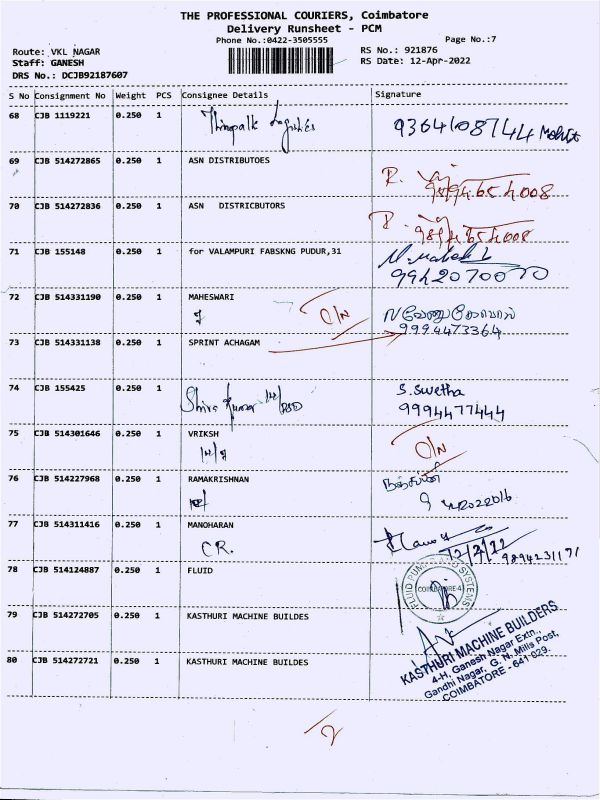 THE PROFESSIONAL COURIERS, Coimbatore
Delivery Runsheet - PCM
Phone No.:0422-3505555
Page No.:7
Route: VKL NAGAR
RS No.: 921876
Staff: GANESH
RS Date: 12-Apr-2022
DRS No.: DCJB92187607
S No Consignment No Weight PCS Consignee Details Signature
68 CJB 1119221 0.250 1 9364108744 Mohit
69 CJB 514272865 0.250 1 ASN DISTRIBUTOES
R.
9894654008
70 CJB 514272836 0.250 1 ASN DISTRICBUTORS
R.
9894654008
71 CJB 155148 0.250 1 for VALAMPURI FABSKNG PUDUR,31
9942070070
72 CJB 514331190 0.250 1 MAHESWARI
O/N
9994473364
73 CJB 514331138 0.250 1 SPRINT ACHAGAM
74 CJB 155425 0.250 1 Shiva Kumar S. Swetha
9994477444
75 CJB 514301646 0.250 1 VRIKSH
O/N
76 CJB 514227968 0.250 1 RAMAKRISHNAN
77 CJB 514311416 0.250 1 MANOHARAN
CR.
9894231171
78 CJB 514124887 0.250 1 FLUID
FLUID PUMPS AND SYSTEMS
COIMBATORE-4
79 CJB 514272705 0.250 1 KASTHURI MACHINE BUILDES
80 CJB 514272721 0.250 1 KASTHURI MACHINE BUILDES
KASTHURI MACHINE BUILDERS
4-H, Ganesh Nagar Extn.,
Gandhi Nagar, G. N. Mills Post,
COIMBATORE - 641 029.